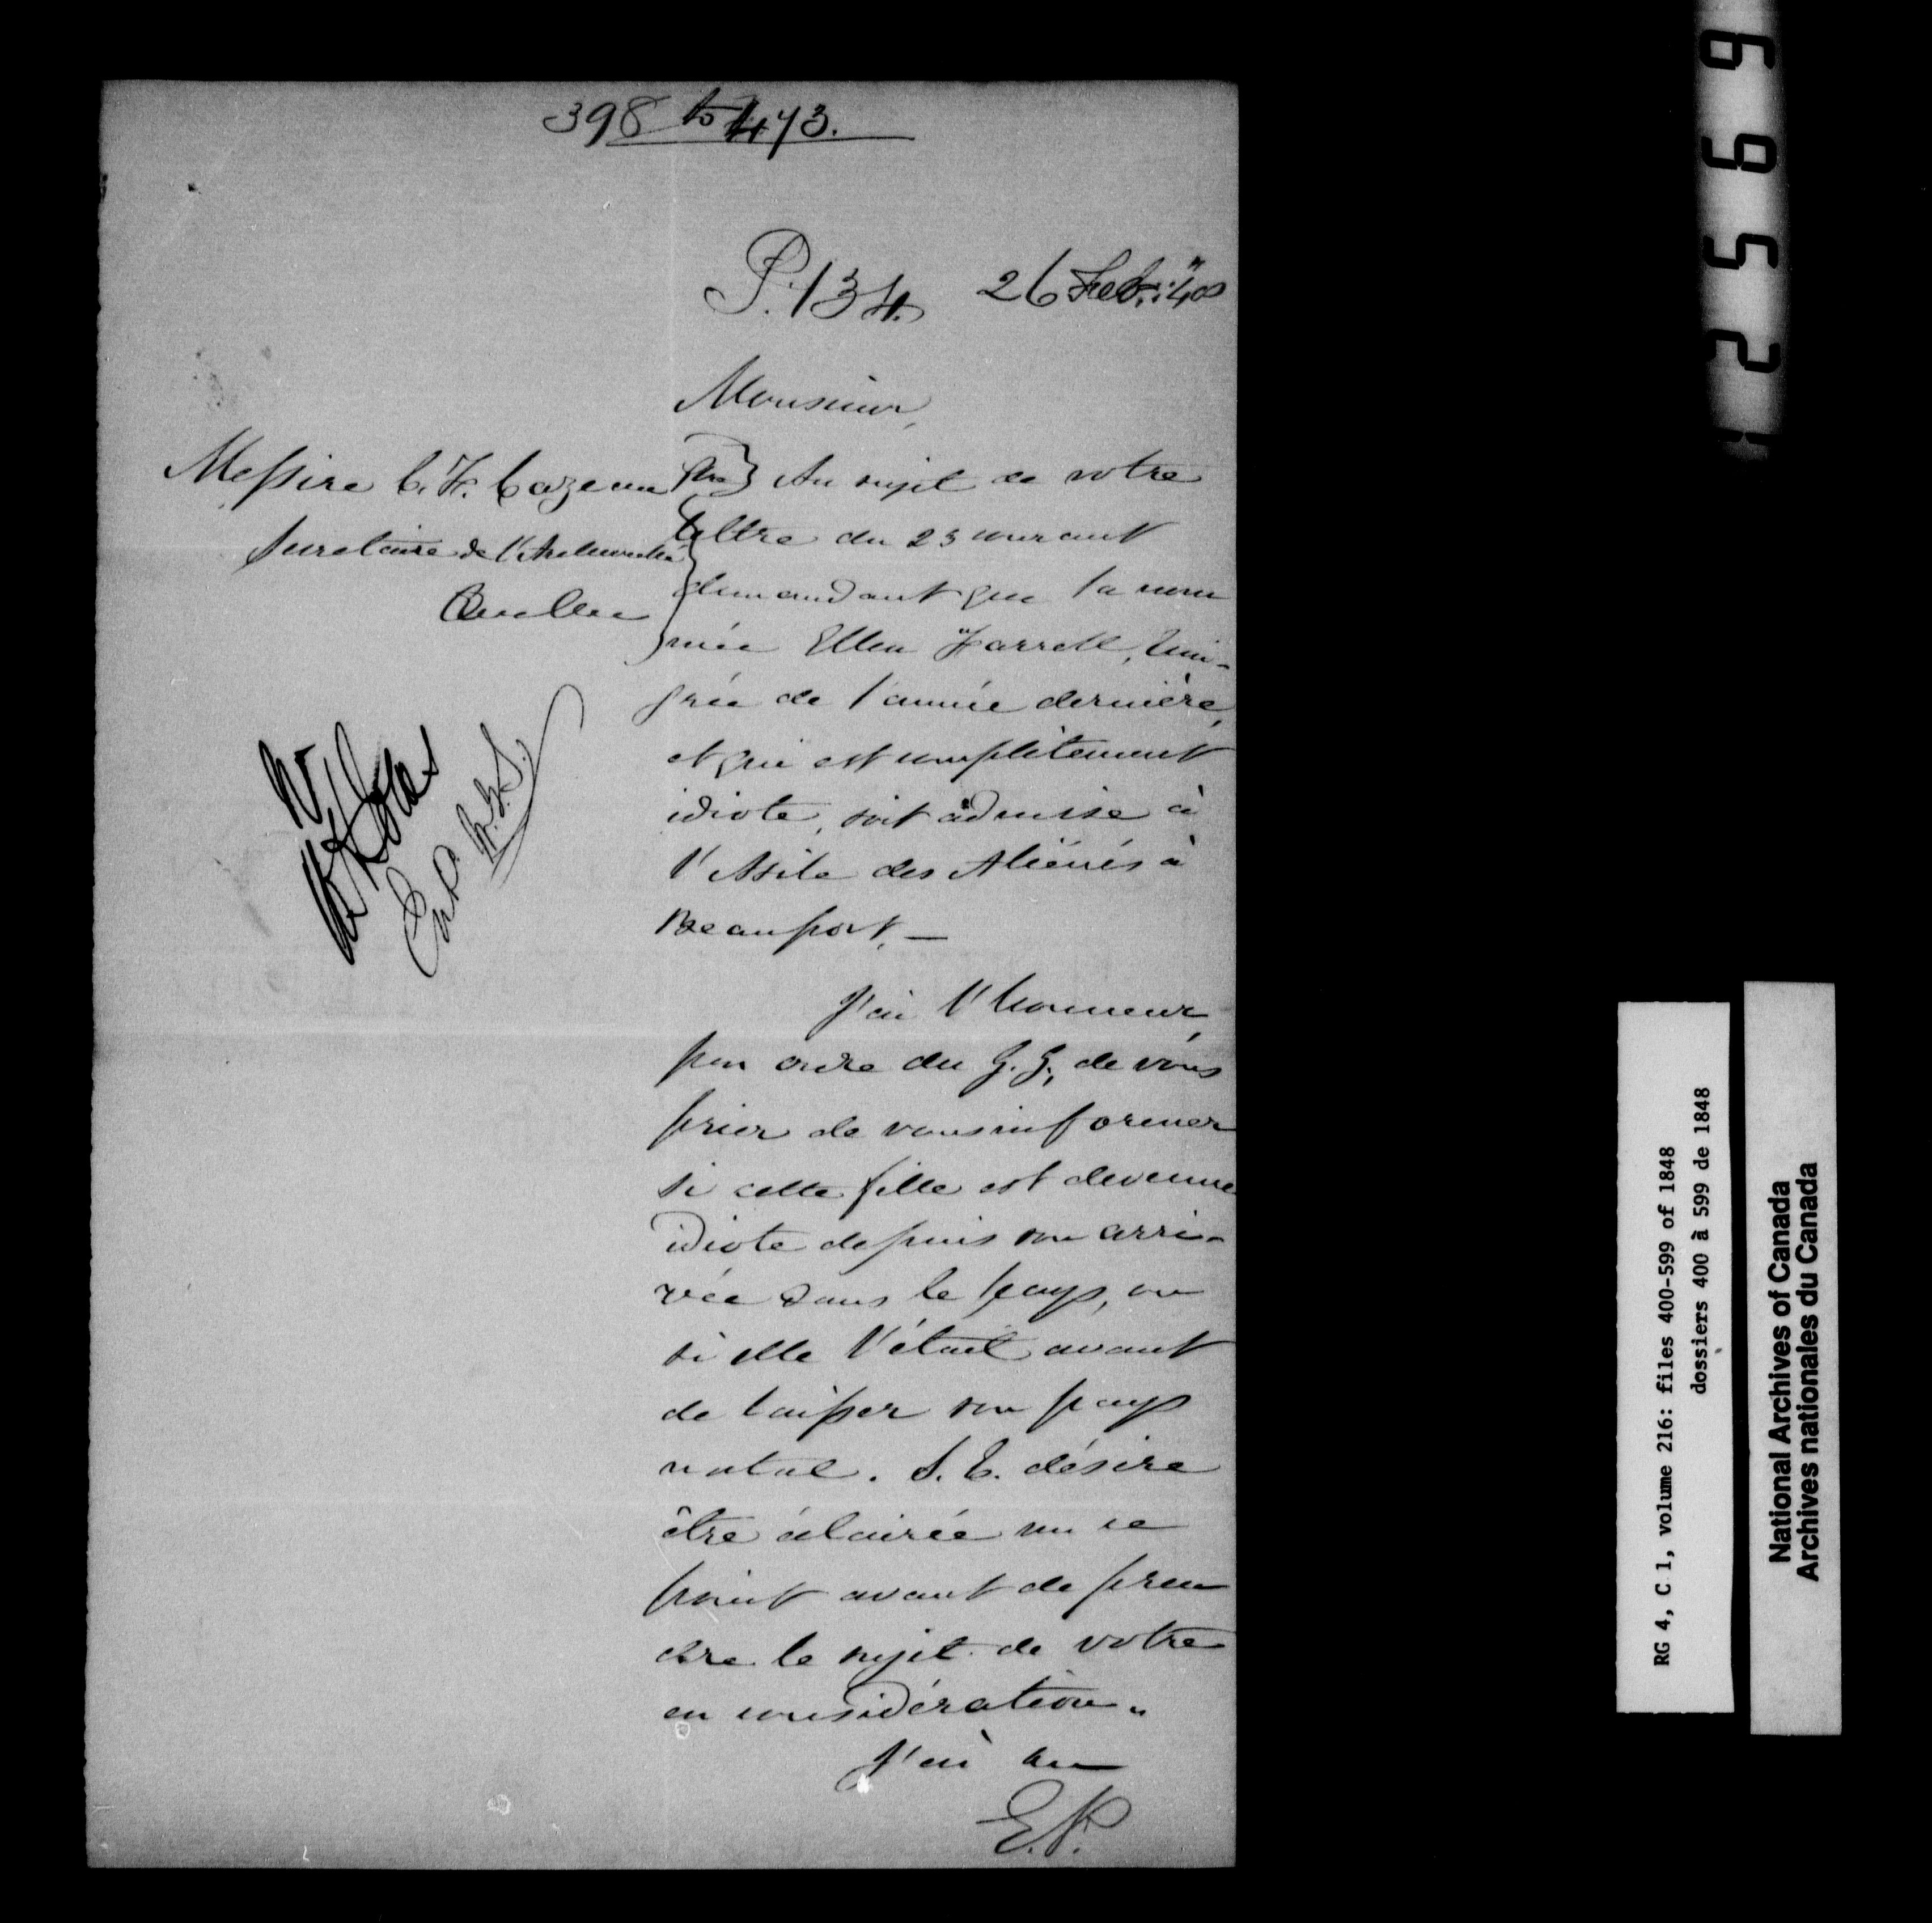 398 to 473.
P. 134. 26 Feb: "48
Monsieur,
Messire C. F. Cazeau Ptre
Secretaire de l'Archevêché
Quebec
Au sujet de votre
lettre du 23 courant
demandant que la nom
mée Ellen Farrell, Emi-
grée de l'année dernière,
et qui est complètement
idiote, soit admise à
l'Asile des Aliénés à
Beauport. —
J'ai l'honneur,
par ordre du G. G., de vous
prier de vous informer
si cette fille est devenue
idiote depuis son arri-
vée dans le pays, ou
si elle l'était avant
de laisser son pays
natal. S. E. désire
être éclairée sur ce
point avant de pren
dre le sujet de votre
en considération.
J'ai
E. P.
Ent. B. G. S.
2 5 9 9
RG 4, C 1, volume 216: files 400-599 of 1848
dossiers 400 à 599 de 1848
National Archives of Canada
Archives nationales du Canada